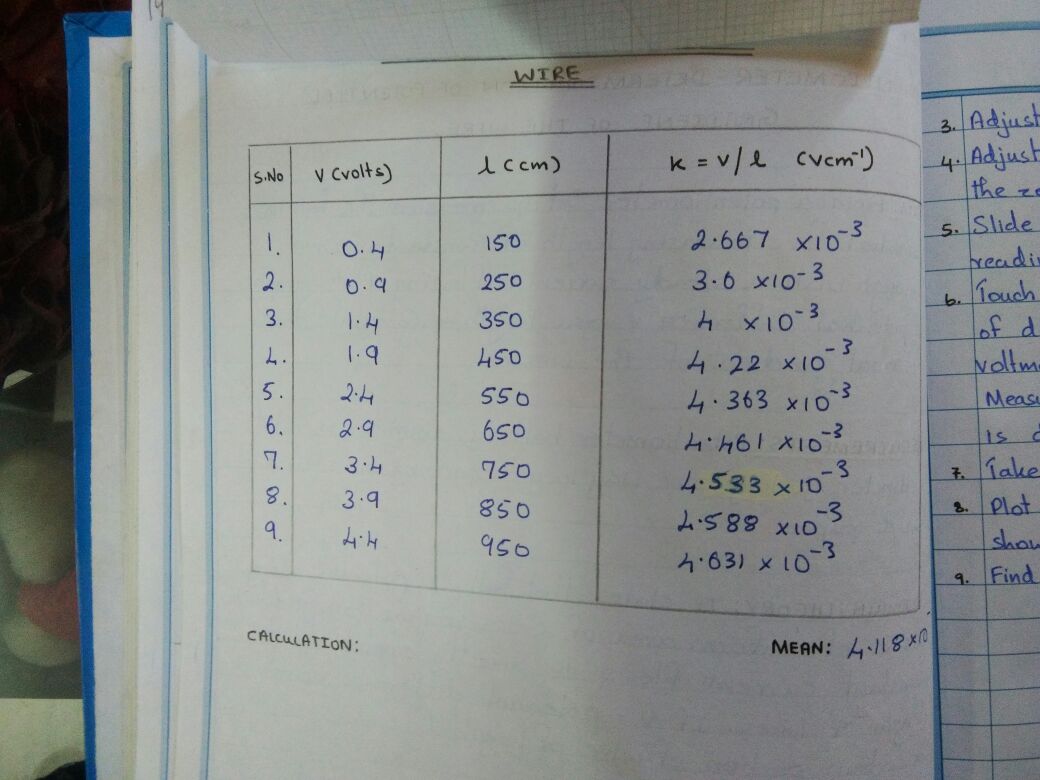 WIRE
S.No V (volts) l (cm) k = v/l (vcm⁻¹)
1. 0.4 150 2.667 ×10⁻³
2. 0.9 250 3.6 ×10⁻³
3. 1.4 350 4 ×10⁻³
4. 1.9 450 4.22 ×10⁻³
5. 2.4 550 4.363 ×10⁻³
6. 2.9 650 4.461 ×10⁻³
7. 3.4 750 4.533 ×10⁻³
8. 3.9 850 4.588 ×10⁻³
9. 4.4 950 4.631 ×10⁻³
CALCULATION: MEAN: 4.118 ×10
3. Adjust
4. Adjust
the
5. Slide
6. Touch
of
is
7. Take
8. Plot
9. Find